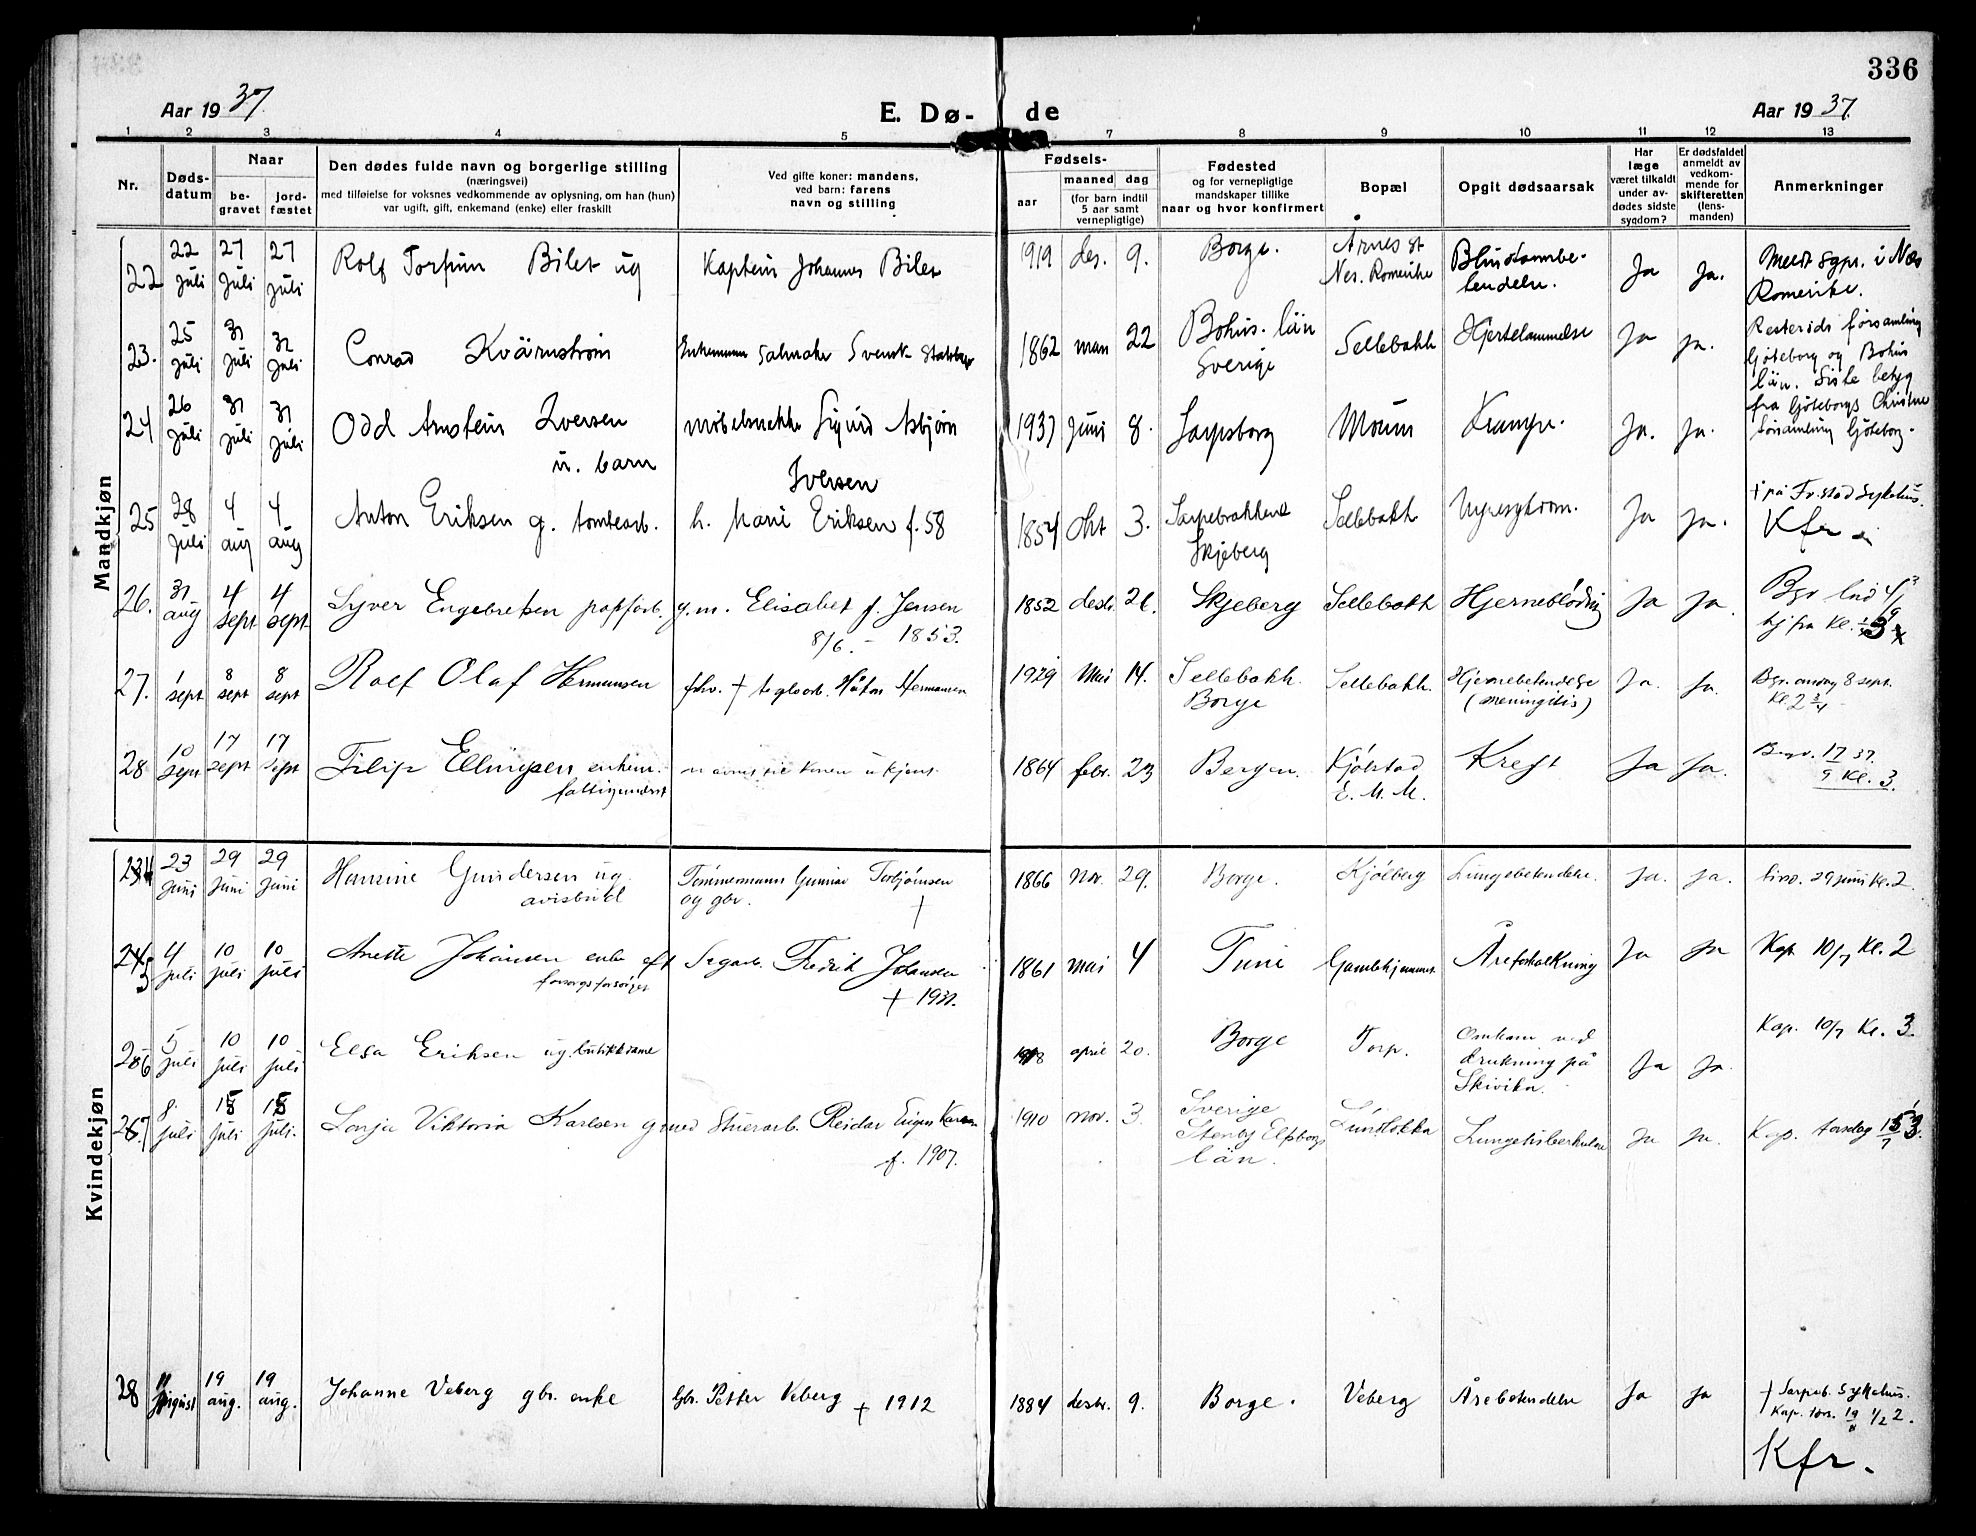 336
Aar 1937.
E. Dø- de
Aar 1937.
1 2 3 4 5 7 8 9 10 11 12 13
Nr.
Døds-
datum
Naar
be-
gravet
jord-
fæstet
Den dødes fulde navn og borgerlige stilling
(næringsvei)
med tilføielse for voksnes vedkommende av oplysning, om han (hun)
var ugift, gift, enkemand (enke) eller fraskilt
Ved gifte koner: mandens,
ved barn: farens
navn og stilling
Fødsels-
aar
maaned dag
(for barn indtil
5 aar samt
vernepligtige)
Fødested
og for vernepligtige
mandskaper tillike
naar og hvor konfirmert
Bopæl
Opgit dødsaarsak
Har
læge
været tilkaldt
under av-
dødes sidste
sygdom?
Er dødsfaldet
anmeldt av
vedkom-
mende for
skifteretten
(lens-
manden)
Anmerkninger
Mandkjøn
22 22 juli 27 juli 27 juli Rolf Torfinn Bilet ug Kaptein Johannes Bilet 1919 des. 9. Borge. Årnes st Nes. Romerike Blindtarmbe-
tendelse. Ja Ja. Meldt sgpr. i Nes
Romerike.
23. 25 juli 31 juli 31 juli Conrad Kvärnström Enkemann Svensk 1862 mars 22 Bohus. län
Sverige Sellebakk Hjertelammelse Ja Ja. församling
Göteborg og Bohus
län. Siste betyg
fra Göteborgs Christine
församling Göteborg.
24 26 juli 31 juli 31 juli Odd Arnstein Iversen
u. barn møbelsnekker Sigurd Asbjørn
Iversen 1937 juni 8. Sarpsborg Moum Krampe. Ja. Ja.
25 28 juli 4 aug 4 aug Anton Eriksen g. tomtearb. h. Marie Eriksen f. 58 1854 okt 3. Sarpebakkene
Skjeberg Sellebakk Nyresykdom. Ja Ja. † på Fr.stad sykehus.
Kfr
26. 31 aug 4 sept 4 sept. Syver Engebretsen papfarb. g.m. Elisabet f. Jensen
8/6. – 1853. 1852 desbr. 26. Skjeberg Sellebakk Hjerneblødning Ja Ja.
27. 1 sept 8 sept 8 sept Rolf Olaf Hermansen fhv. † teglarb. Håkon Hermansen 1929 Mai 14. Sellebakk.
Borge Sellebakk. Hjernebetendelse
(meningitis) Ja. Ja. Bgr. onsdag 8 sept.
Kl. 2 3/4
28 10 sept 17 sept 17 sept Filip Ellingsen enkem.
fattigunderst ukjent 1864 febr. 23 Bergen. Kjølstad
E. M. M. Kreft Ja Ja. Begr. 17/9 37.
Kl. 3.
Kvindekjøn
234 23 juni 29 juni 29 juni Hannine Gundersen ug.
avisbud Tømmermann Gunnar Torbjørnsen
og gbr. † 1866 Nov. 29. Borge. Kjølberg Lungebetendelse. Ja. Ja. 29 juni kl. 2.
245 4 juli 10 juli 10 juli Anette Johansen enke eft
forsorgsforsørget Sagarb. Fredrik Johansen
† 1931. 1861 mai 4 Tune Gamlehjemmet Åreforkalkning Ja Ja Kap 10/7 Kl. 2
256 5 juli 10 juli 10 juli Elsa Eriksen ug. butikkdame 1918 april 20. Borge Torp. Omkom ved
drukning på
Skivika. Ja Ja. Kap. 10/7 Kl. 3.
267 8. juli 15 juli 15 juli. Sonja Viktoria Karlsen g med Stuerarb. Reidar Eugen Karlsen
f. 1907. 1910 nov. 3. Sverige
Elfsborgs
län. Lundløkka Lungetuberkulose Ja Ja. Kap. torsdag 15/7 3.
28 11 august 19 aug. 19 aug. Johanne Veberg gbr. enke Gbr. Petter Veberg † 1912 1884 desbr. 9. Borge. Veberg Årebetendelse Ja Ja † Sarpsb. Sykehus.
Kap. tors. 19/8 1/2 2.
Kfr.